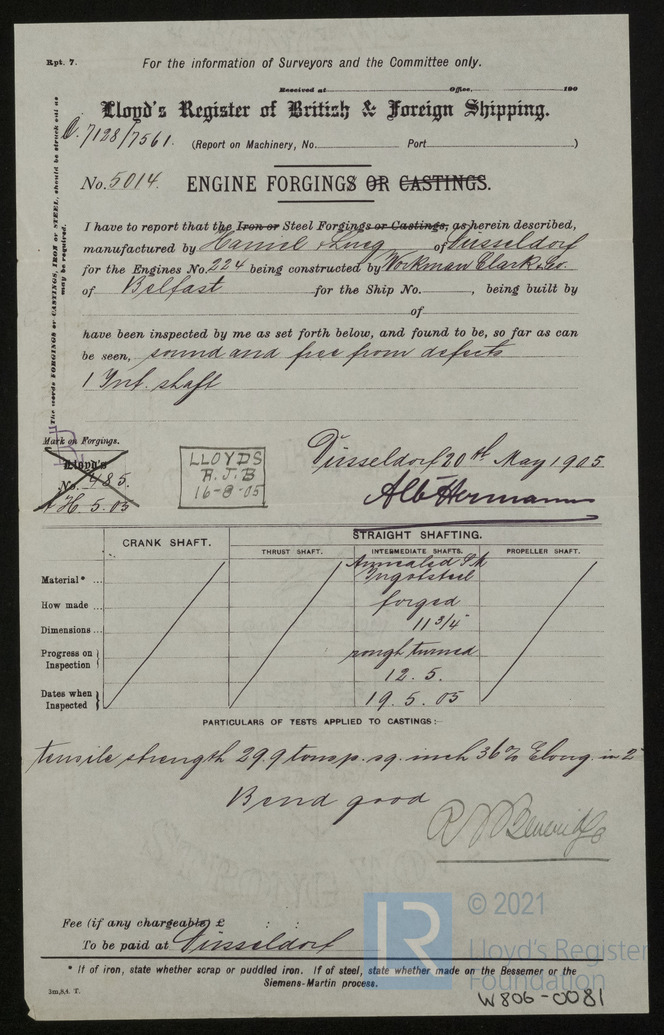 Rpt. 7.
For the information of Surveyors and the Committee only.
Received at Office, 190
Lloyd's Register of British & Foreign Shipping.
C.7128/7561.
(Report on Machinery, No. Port )
No. 5014. ENGINE FORGINGS OR CASTINGS.
The words FORGINGS or CASTINGS, IRON or STEEL, should be struck out as may be required.
I have to report that the Iron or Steel Forgings or Castings, as herein described,
manufactured by Haniel & Lueg of Düsseldorf
for the Engines No. 224 being constructed by Workman Clark & Co.
of Belfast for the Ship No. , being built by
of
have been inspected by me as set forth below, and found to be, so far as can
be seen, sound and free from defects
1 Int. shaft
Mark on Forgings.
Lloyd's
No. 485.
A H. 5.05
LLOYDS
R.J.B
16-8-05
Düsseldorf 20th May 1905
Alb Hermanns
CRANK SHAFT.
STRAIGHT SHAFTING.
THRUST SHAFT. INTERMEDIATE SHAFTS. PROPELLER SHAFT.
Material* ... Annealed S.M.
Ingotsteel
How made ... forged
Dimensions ... 11 3/4"
Progress on Inspection rough turned
12. 5.
Dates when Inspected 19. 5. 05
PARTICULARS OF TESTS APPLIED TO CASTINGS:—
tensile strength 29.9 tons p. sq. inch 36% Elong. in 2"
Bend good
R J Beveridge
Fee (if any chargeable) £ : :
To be paid at Düsseldorf
* If of iron, state whether scrap or puddled iron. If of steel, state whether made on the Bessemer or the
Siemens-Martin process.
3m,8,4. T.
W806-0081
LR
© 2021
Lloyd's Register
Foundation